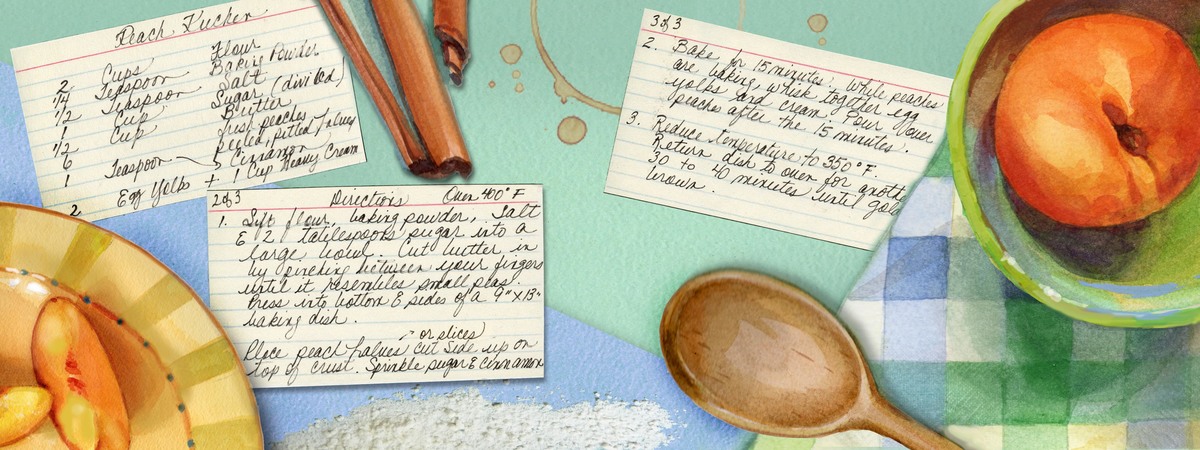 Peach Kuchen
2 Cups Flour
1/4 Teaspoon Baking Powder
1/2 Teaspoon Salt
1 Cup Sugar (divided)
1/2 Cup Butter
6 fresh peaches
peeled, pitted, halved
1 Teaspoon Cinnamon
2 Egg Yolks + 1 Cup Heavy Cream
2 of 3 Directions Oven 400° F
1. Sift flour, baking powder, Salt
& 2 tablespoons sugar into a
large bowl. Cut butter in
by pinching between your fingers
until it resembles small peas.
Press into bottom & sides of a 9" x 13"
baking dish.
or slices
Place peach halves cut side up on
top of crust. Sprinkle sugar & cinnamon
3 of 3
2. Bake for 15 minutes. While peaches
are baking, whisk together egg
yolks and cream. Pour over
peaches after the 15 minutes.
3. Reduce temperature to 350° F.
Return dish to oven for anothe
30 to 40 minutes until gol
brown.